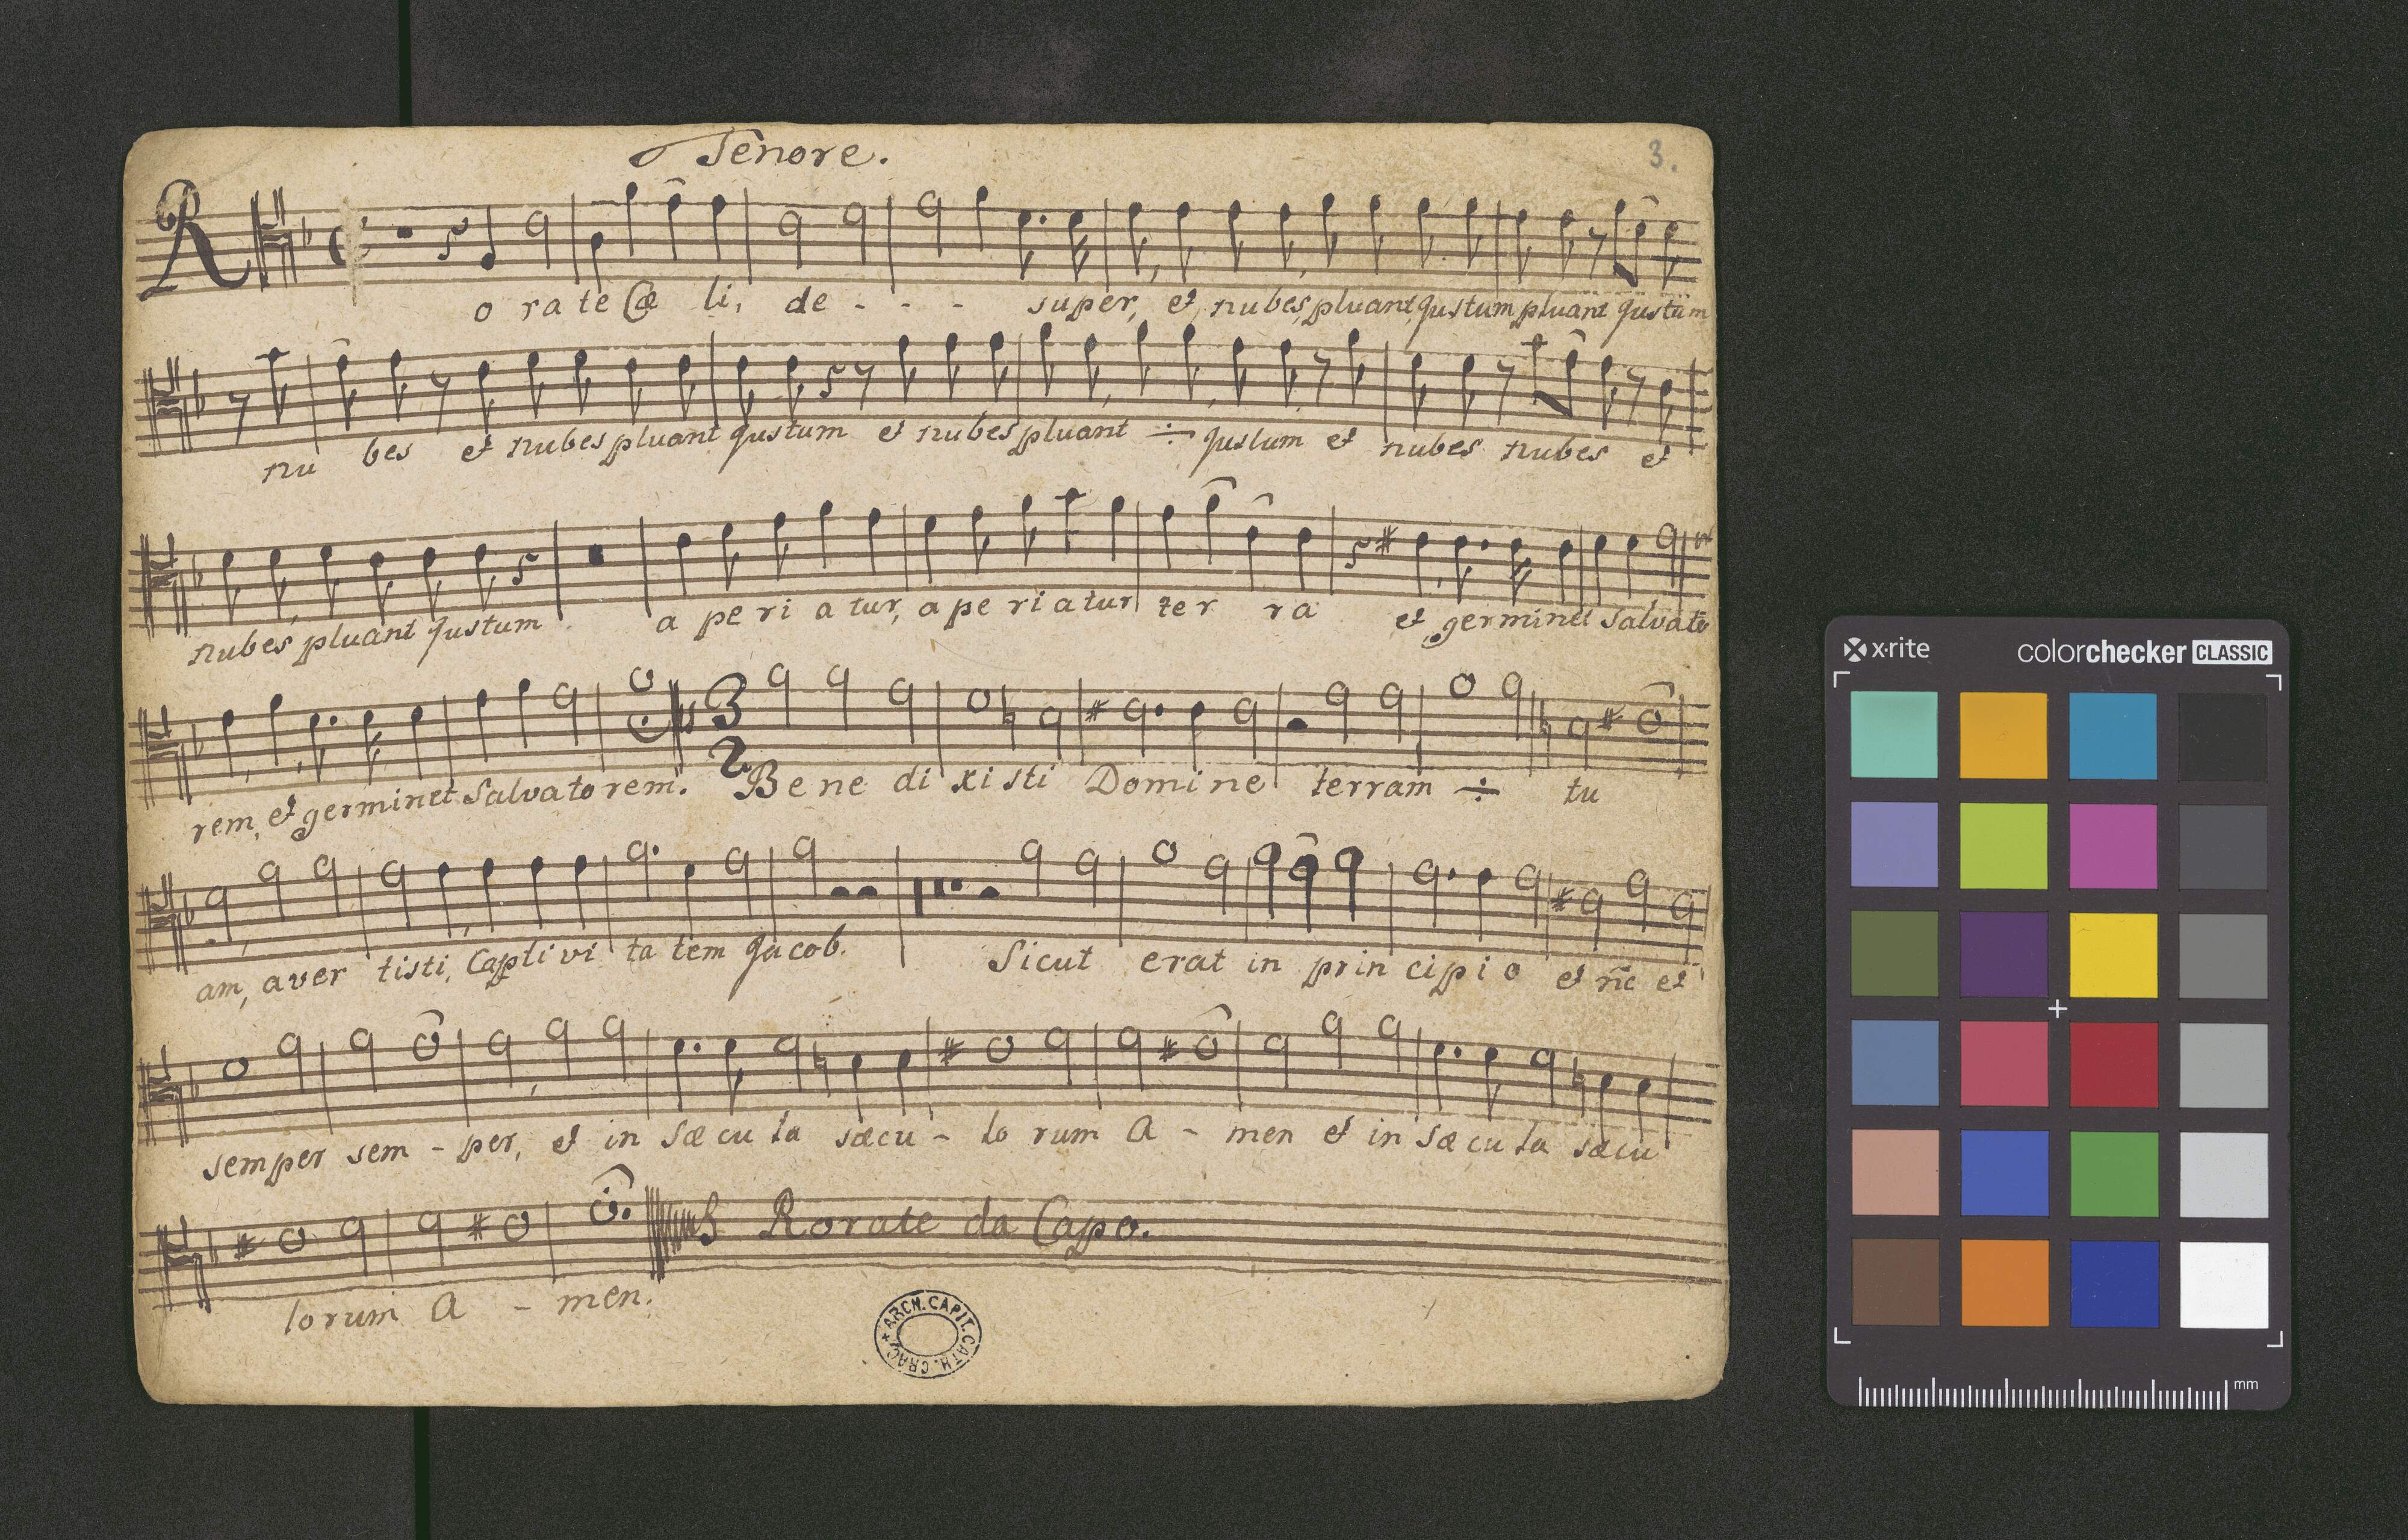 Tenore.
3.
Rorate Cæli, de - - - super, et nubes, pluant, Justum pluant Justum
nu bes et nubes pluant Justum et nubes pluant ÷ Justum et nubes nubes et
nubes, pluant Justum a pe ri a tur, a pe ri a tur ter ra et germinet Salvato
rem, et germinet Salvatorem. 3 2 Bene di xi sti Domine terram ÷ tu
am, aver tisti, Captivi ta tem Jacob. Sicut erat in prin cipi o et nc̃ et
semper sem - per, et in sæ cu la sæcu - lo rum A - men et in sæ cu la sæcu
lorum A - men. Rorate da Capo.
ARCH. CAPIT. CATH. CRAC.
x·rite colorchecker CLASSIC
mm